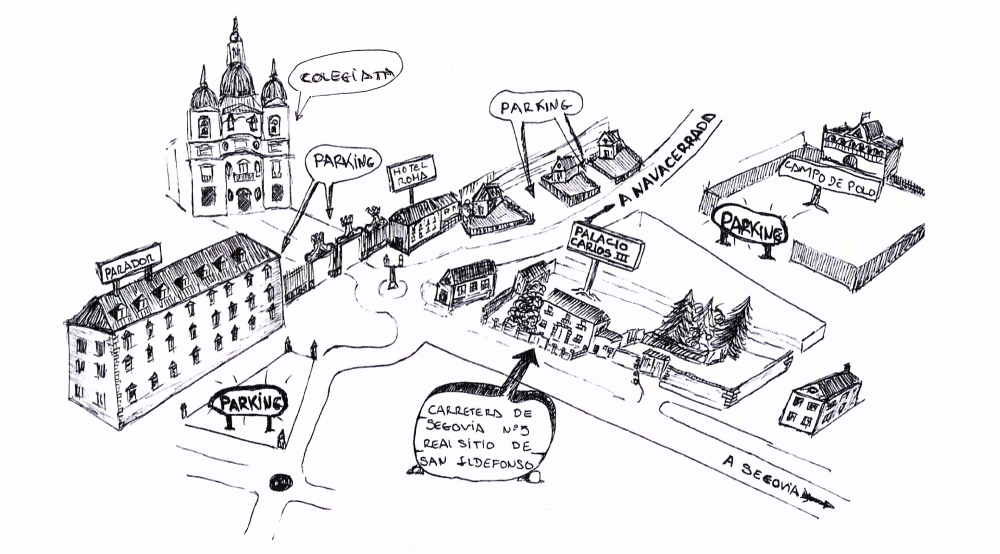 COLEGIATA
PARKING
PARKING
HOTEL
ROMA
A NAVACERRADA
CAMPO DE POLO
PARKING
PALACIO
CARLOS III
PARADOR
PARKING
CARRETERA DE
SEGOVIA Nº5
REAL SITIO DE
SAN ILDEFONSO
A SEGOVIA